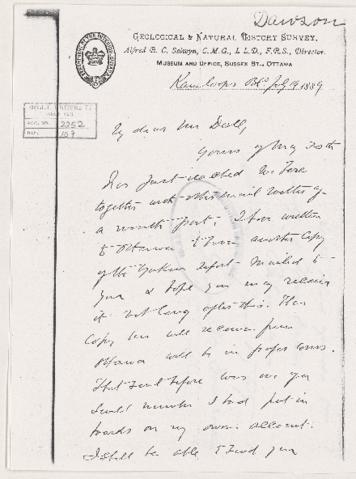 Dawson
GEOLOGICAL & NATURAL HISTORY SURVEY.
Alfred R. C. Selwyn, C.M.G., LL.D., F.R.S., Director.
MUSEUM AND OFFICE, SUSSEX ST., OTTAWA
Kamloops B.C. July 19 1889
My dear Mr Dall,
Yours of May
has just reached me here
together with other mail matter of
a month past. I have written
to Ottawa to have another copy
of the Yukon report mailed to
you & hope you may receive
it not long after this. The
copy you will receive from
Ottawa will be in proper covers.
That sent before was one of a
small number I had put in
boards on my own account.
I shall be able to send you